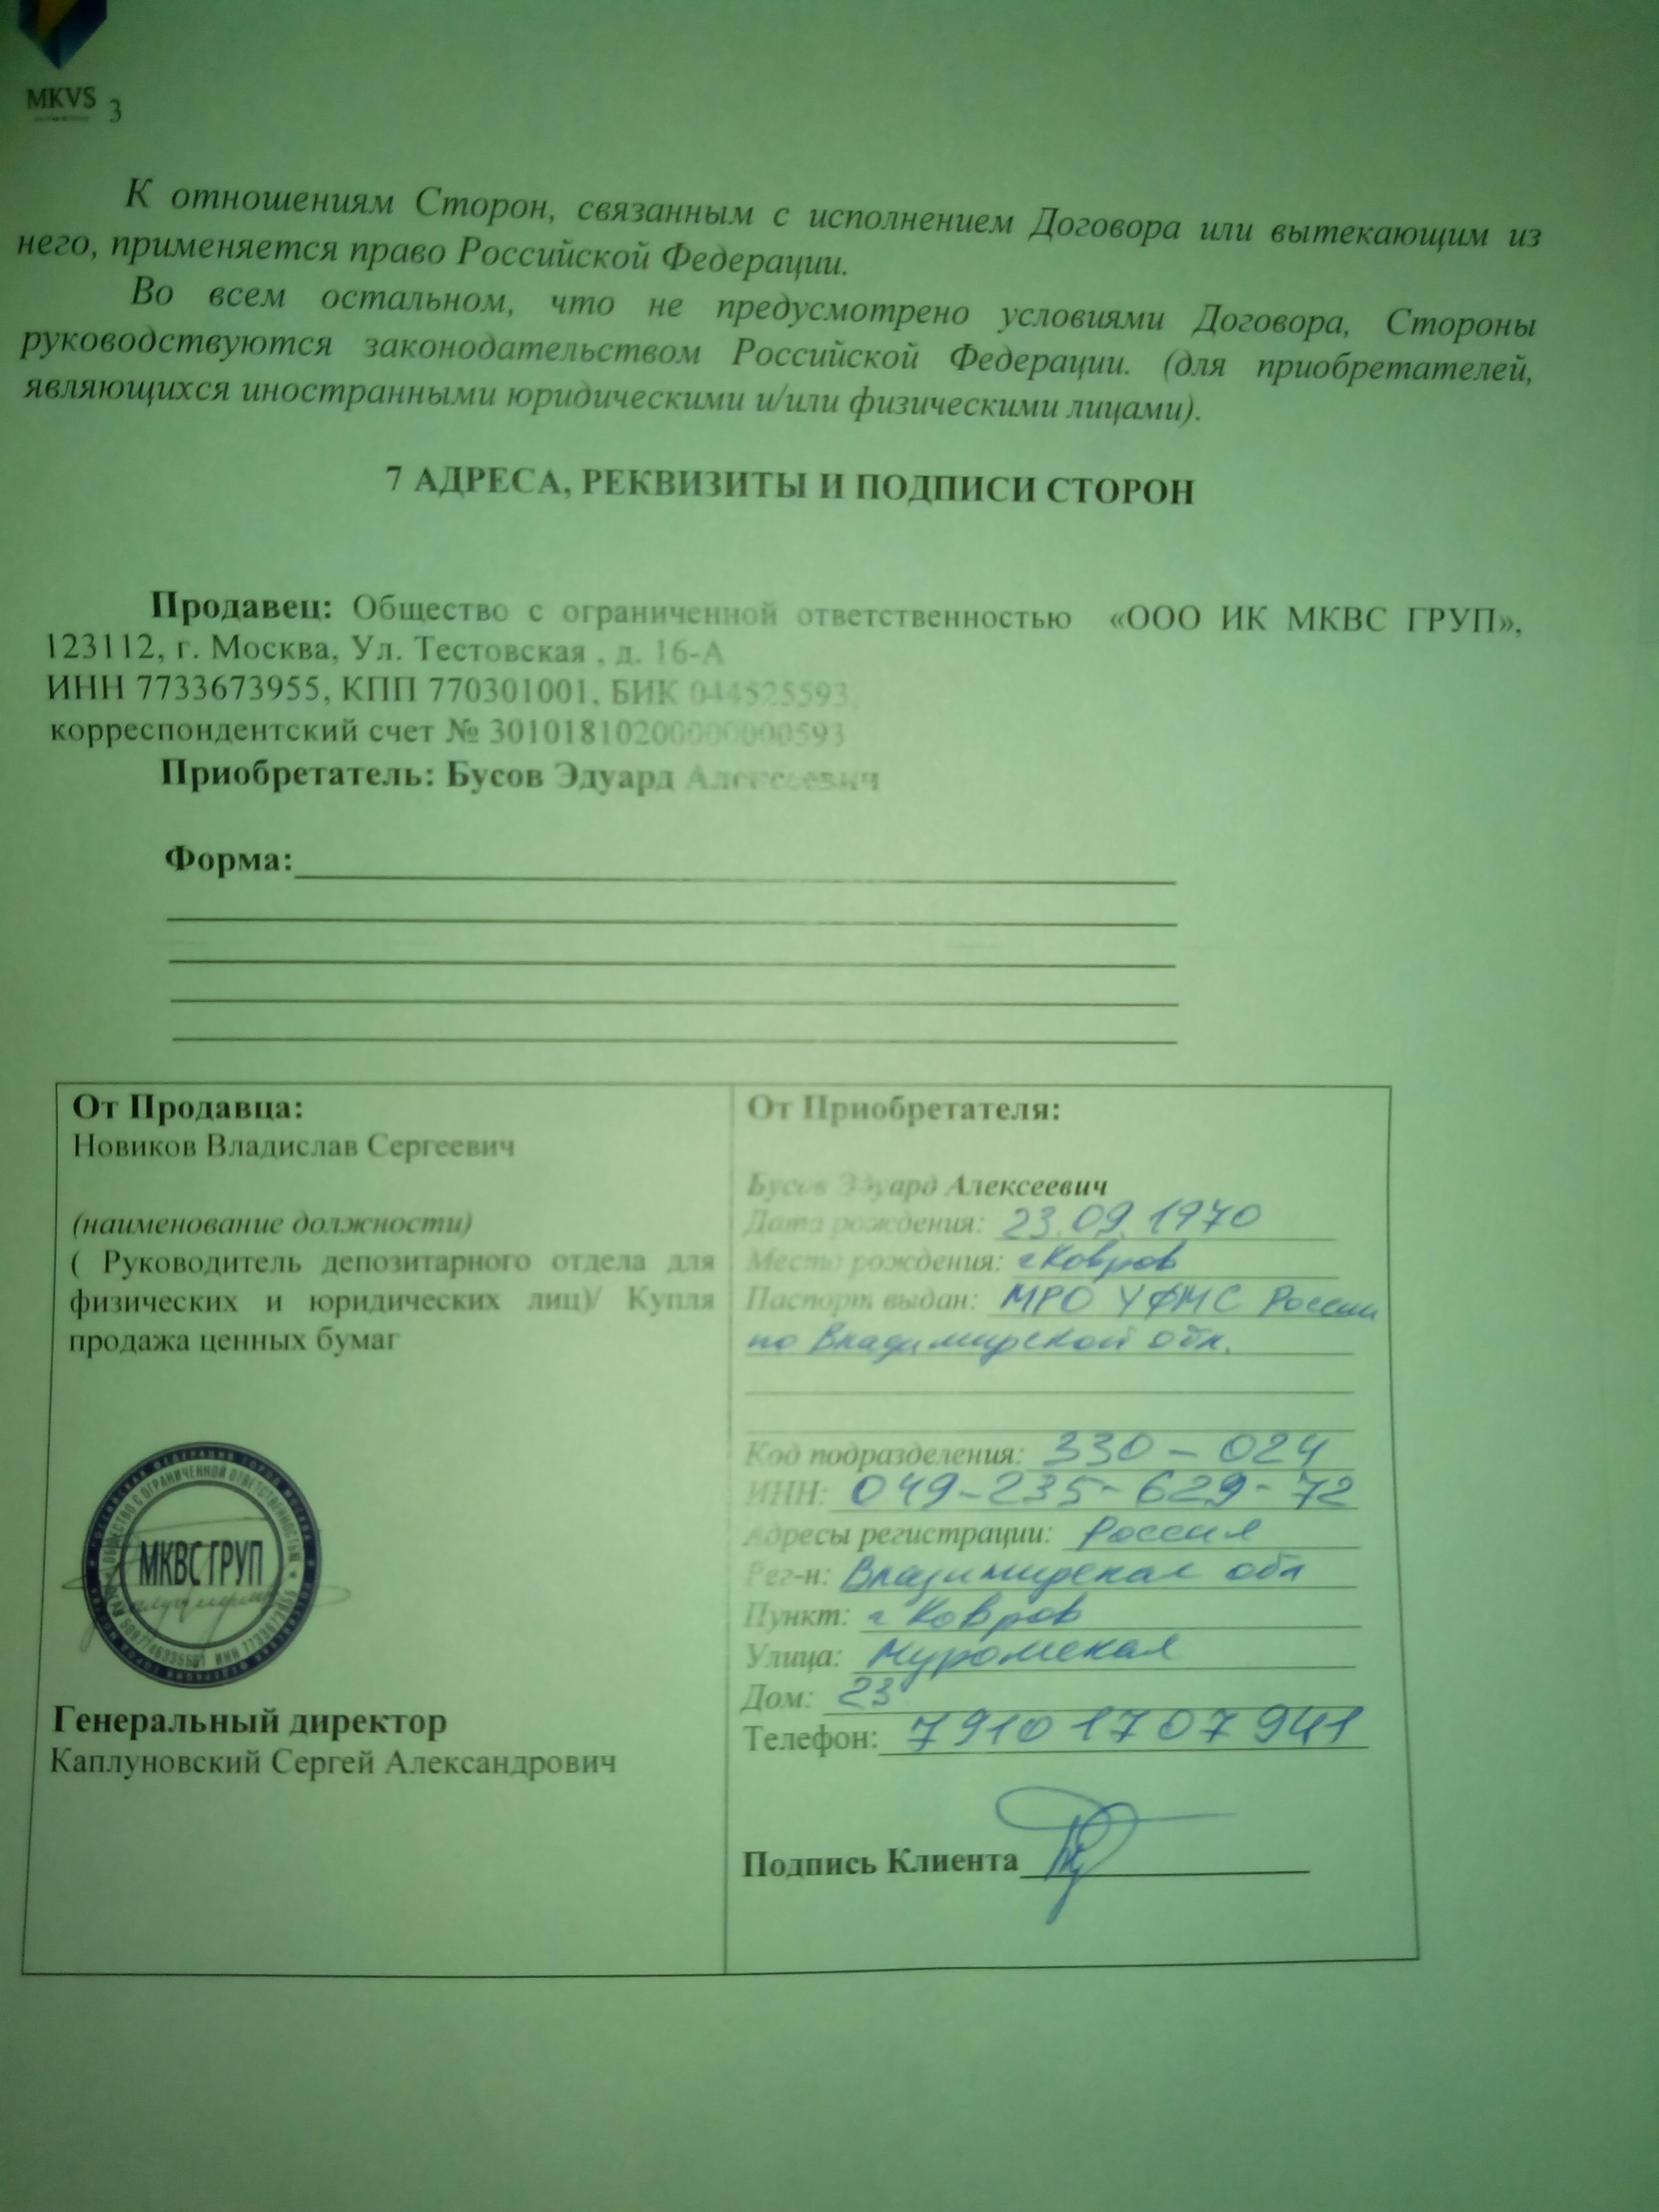 MKVS 3
К отношениям Сторон, связанным с исполнением Договора или вытекающим из
него, применяется право Российской Федерации.
Во всем остальном, что не предусмотрено условиями Договора, Стороны
руководствуются законодательством Российской Федерации. (для приобретателей,
являющихся иностранными юридическими и/или физическими лицами).
7 АДРЕСА, РЕКВИЗИТЫ И ПОДПИСИ СТОРОН
Продавец: Общество с ограниченной ответственностью «ООО ИК МКВС ГРУП»,
123112, г. Москва, Ул. Тестовская , д. 16-А
ИНН 7733673955, КПП 770301001, БИК 044525593,
корреспондентский счет № 30101810200000000593
Приобретатель: Бусов Эдуард Алексеевич
Форма:
От Продавца:
Новиков Владислав Сергеевич
(наименование должности)
( Руководитель депозитарного отдела для
физических и юридических лиц)/ Купля
продажа ценных бумаг
МКВС ГРУП
Генеральный директор
Каплуновский Сергей Александрович
От Приобретателя:
Бусов Эдуард Алексеевич
Дата рождения: 23.09.1970
Место рождения: г Ковров
Паспорт выдан: МРО УФМС России
по Владимирской обл.
Код подразделения: 330-024
ИНН: 049-235-629-72
Адресы регистрации: Россия
Рег-н: Владимирская обл
Пункт: г Ковров
Улица: Муромская
Дом: 23
Телефон: 79101707941
Подпись Клиента